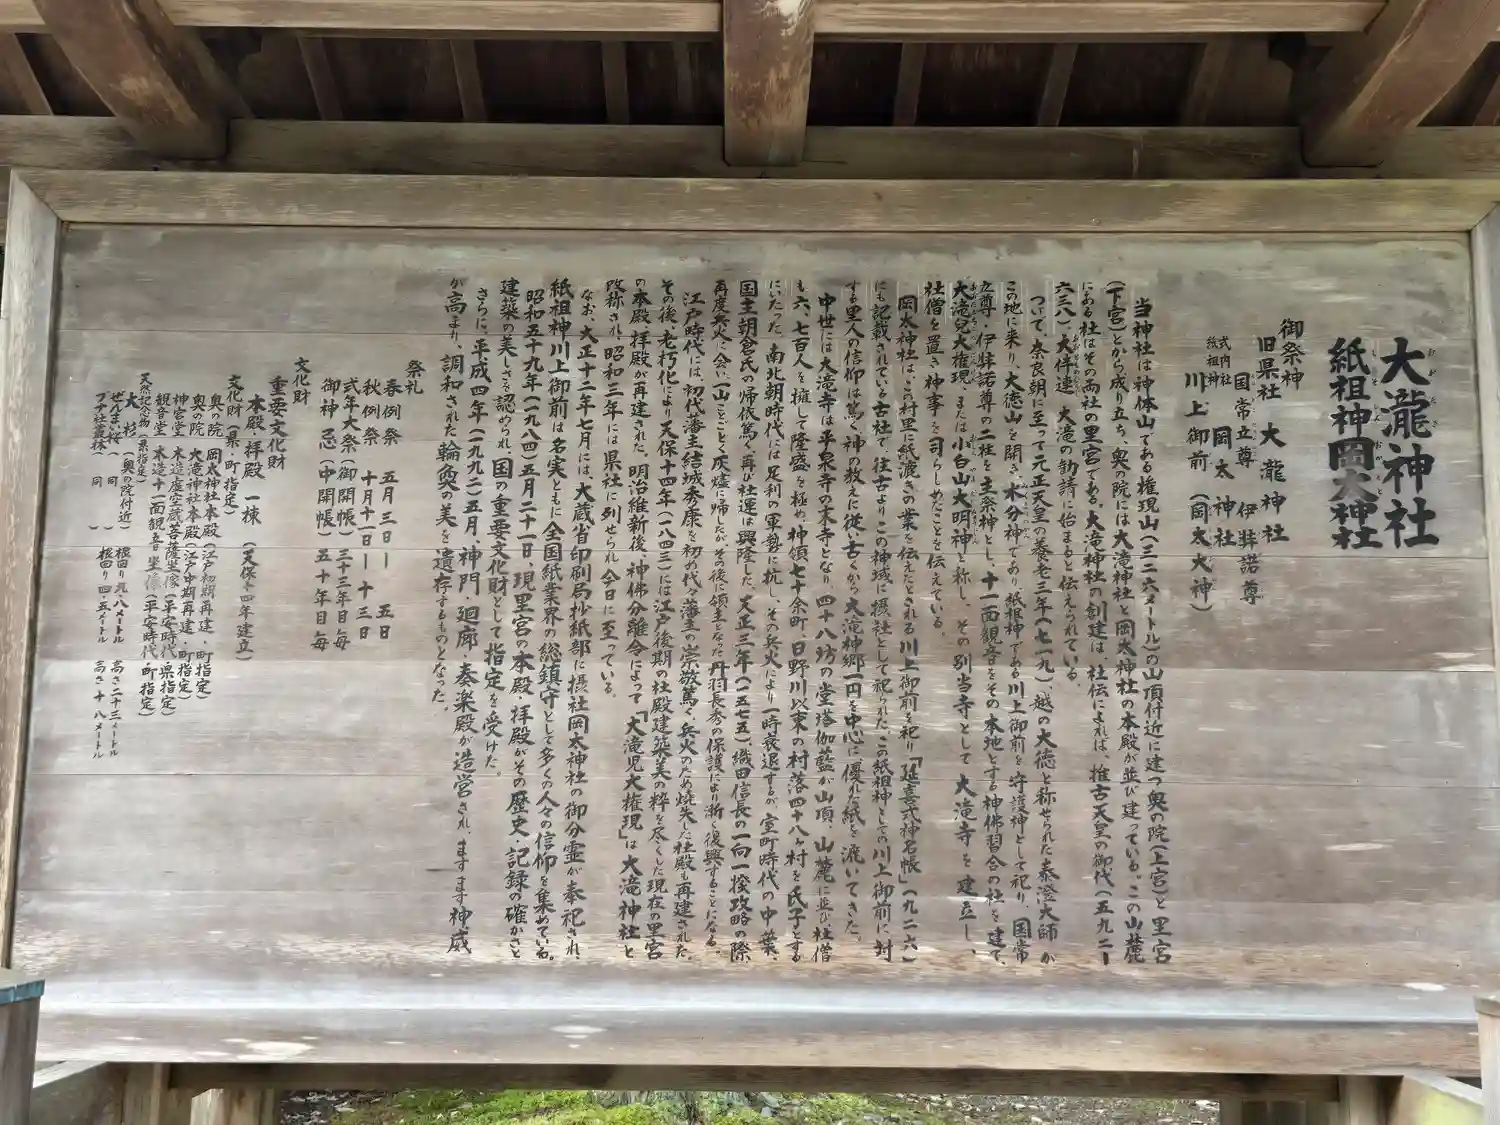 大瀧神社
紙祖神岡太神社
御祭神
旧県社 大瀧神社
国常立尊 伊弉諾尊
式内社 紙祖神 岡太神社
川上御前(岡太大神)
当神社は神体山である権現山(三二六メートル)の山頂付近に建つ奥の院(上宮)と里宮
(下宮)とから成り立ち、奥の院には大滝神社と岡太神社の本殿が並び建っている。この山麓
にある社はその両社の里宮である。大滝神社の創建は、社伝によれば、推古天皇の御代(五九二ー
六三八)、大伴連大滝の勧請に始まると伝えられている
ついで、奈良朝に至って元正天皇の養老三年(七一九)、越の大徳と称せられた泰澄大師が
この地に来り、大徳山を開き、水分神であり紙祖神である川上御前を守護神として祀り、国常
立尊・伊弉諾尊の二柱を主祭神とし、十一面観音をその本地とする神佛習合の社を建て、
大滝児大権現、または小白山大明神と称し、その別当寺として大滝寺を建立し、
社僧を置き神事を司らしめたことを伝えている。
岡太神社は、この村里に紙漉きの業を伝えたとされる川上御前を祀り「延喜式神名帳」(九二六)
にも記載されている古社で、往古よりこの神域に摂社として祀られた。この紙祖神としての川上御前に対
する里人の信仰は篤く、神の教えに従い古くから大滝神郷一円を中心に優れた紙を漉いてきた。
中世には大滝寺は平泉寺の末寺となり、四十八坊の堂塔伽藍が山頂、山麓に並び社僧
も六、七百人を擁して隆盛を極め、神領七十余町、日野川以東の村落四十八ヶ村を氏子とする
にいたった。南北朝時代には足利の軍勢に抗し、その兵火により一時衰退するが、室町時代の中葉、
国主朝倉氏の帰依篤く、再び社運は興隆した。天正三年(一五七五)織田信長の一向一揆攻略の際、
再度兵火に会い一山ことごとく灰燼に帰したが、その後に領主となった丹羽長秀の保護により漸く復興することになる。
江戸時代には、初代藩主結城秀康を初め代々藩主の崇敬篤く、兵火のため焼失した社殿も再建された。
その後、老朽化により天保十四年(一八四三)には江戸後期の社殿建築美の粋を尽くした現在の里宮
の本殿・拝殿が再建された。明治維新後、神佛分離令によって「大滝児大権現」は大滝神社と
改称され、昭和三年には県社に列せられ今日に至っている。
なお、大正十二年七月には、大蔵省印刷局抄紙部に摂社岡太神社の御分霊が奉祀され、
紙祖神川上御前は名実ともに全国紙業界の総鎮守として多くの人々の信仰を集めている。
昭和五十九年(一九八四)五月二十一日、現里宮の本殿・拝殿がその歴史・記録の確かさと
建築の美しさを認められ、国の重要文化財として指定を受けた。
さらに、平成四年(一九九二)五月、神門・廻廊・奏楽殿が造営され、ますます神威
が高まり、調和された輪奐の美を遺存するものとなった。
祭礼
春例祭 五月三日ー五日
秋例祭 十月十一日ー十三日
式年大祭(御開帳)三十三年目毎
御神忌(中開帳)五十年目毎
文化財
重要文化財
本殿・拝殿 一棟 (天保十四年建立)
文化財(県・町指定)
奥の院 岡太神社本殿(江戸初期再建・町指定)
奥の院 大滝神社本殿(江戸中期再建・町指定)
神宮堂 木造虚空蔵菩薩坐像(平安時代・県指定)
観音堂 木造十一面観音坐像(平安時代・町指定)
天然記念物(県指定)
大杉(奥の院付近) 根回り九・八メートル 高さ二十三メートル
ぜんまい桜( 同 ) 根回り四・五メートル 高さ十八メートル
ブナ社叢林( 同 )